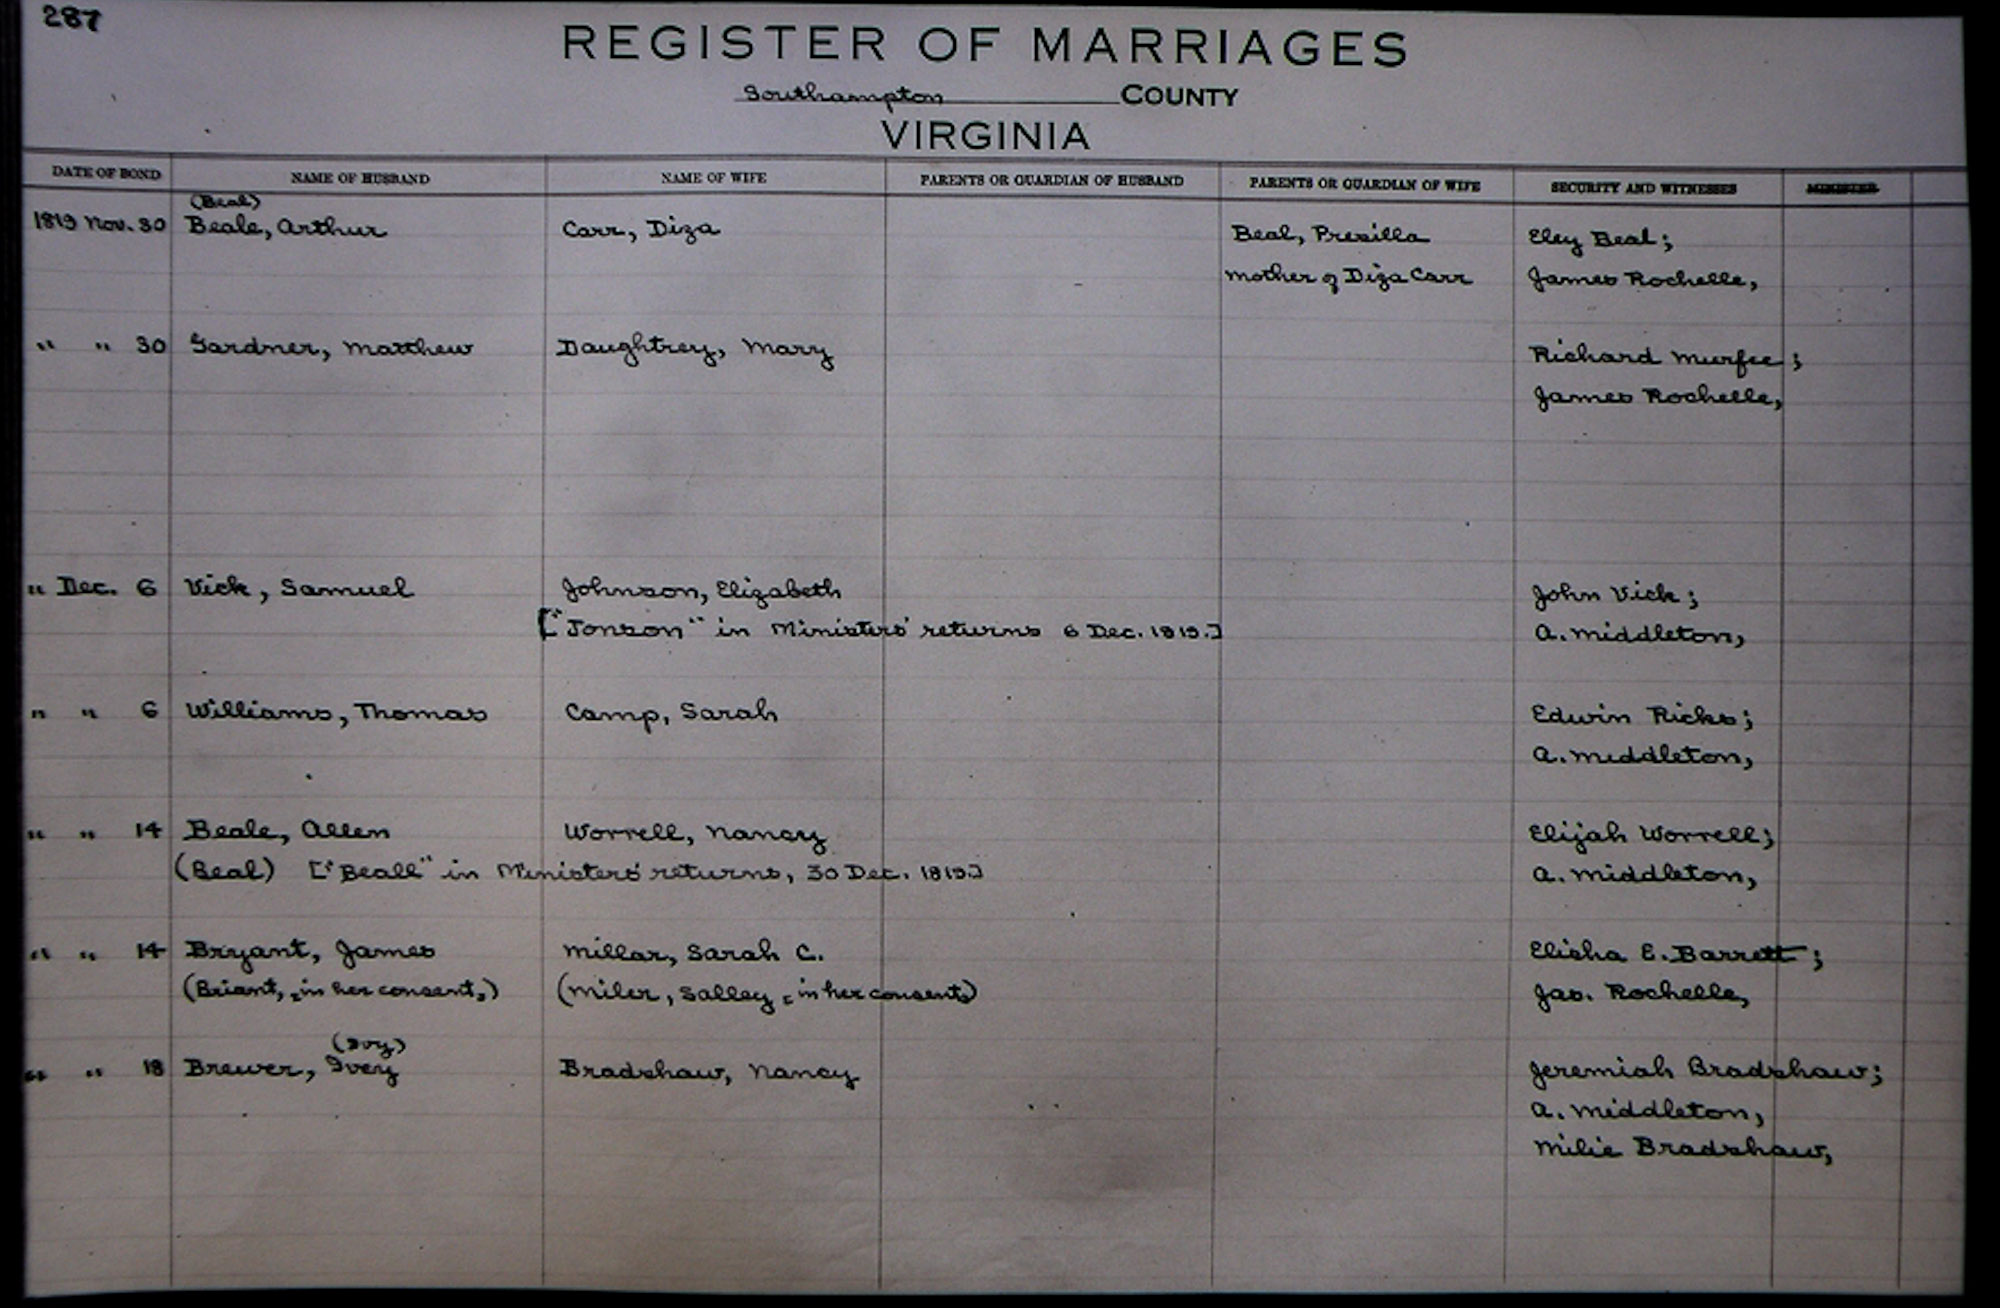 287
REGISTER OF MARRIAGES
Southampton COUNTY
VIRGINIA
DATE OF BOND NAME OF HUSBAND NAME OF WIFE PARENTS OR GUARDIAN OF HUSBAND PARENTS OR GUARDIAN OF WIFE SECURITY AND WITNESSES MINISTER
(Beal)
1819 Nov. 30 Beale, Arthur Carr, Diza Beal, Presilla Eley Beal;
mother of Diza Carr James Rochelle,
" " 30 Gardner, Matthew Daughtrey, Mary Richard Murfee;
James Rochelle,
" Dec. 6 Vick, Samuel Johnson, Elizabeth John Vick;
["Jonson" in Ministers' returns 6 Dec. 1819.] A. Middleton,
" " 6 Williams, Thomas Camp, Sarah Edwin Ricks;
A. Middleton,
" " 14 Beale, Allen Worrell, Nancy Elijah Worrell;
(Beal) ["Beall" in Ministers' returns, 30 Dec. 1819.] A. Middleton,
" " 14 Bryant, James Millar, Sarah C. Elisha E. Barrett;
(Briant, in her consent,) (Miler, Salley, in her consent) Jas. Rochelle,
(Ivy)
" " 18 Brewer, Ivey Bradshaw, Nancy Jeremiah Bradshaw;
A. Middleton,
Milie Bradshaw,